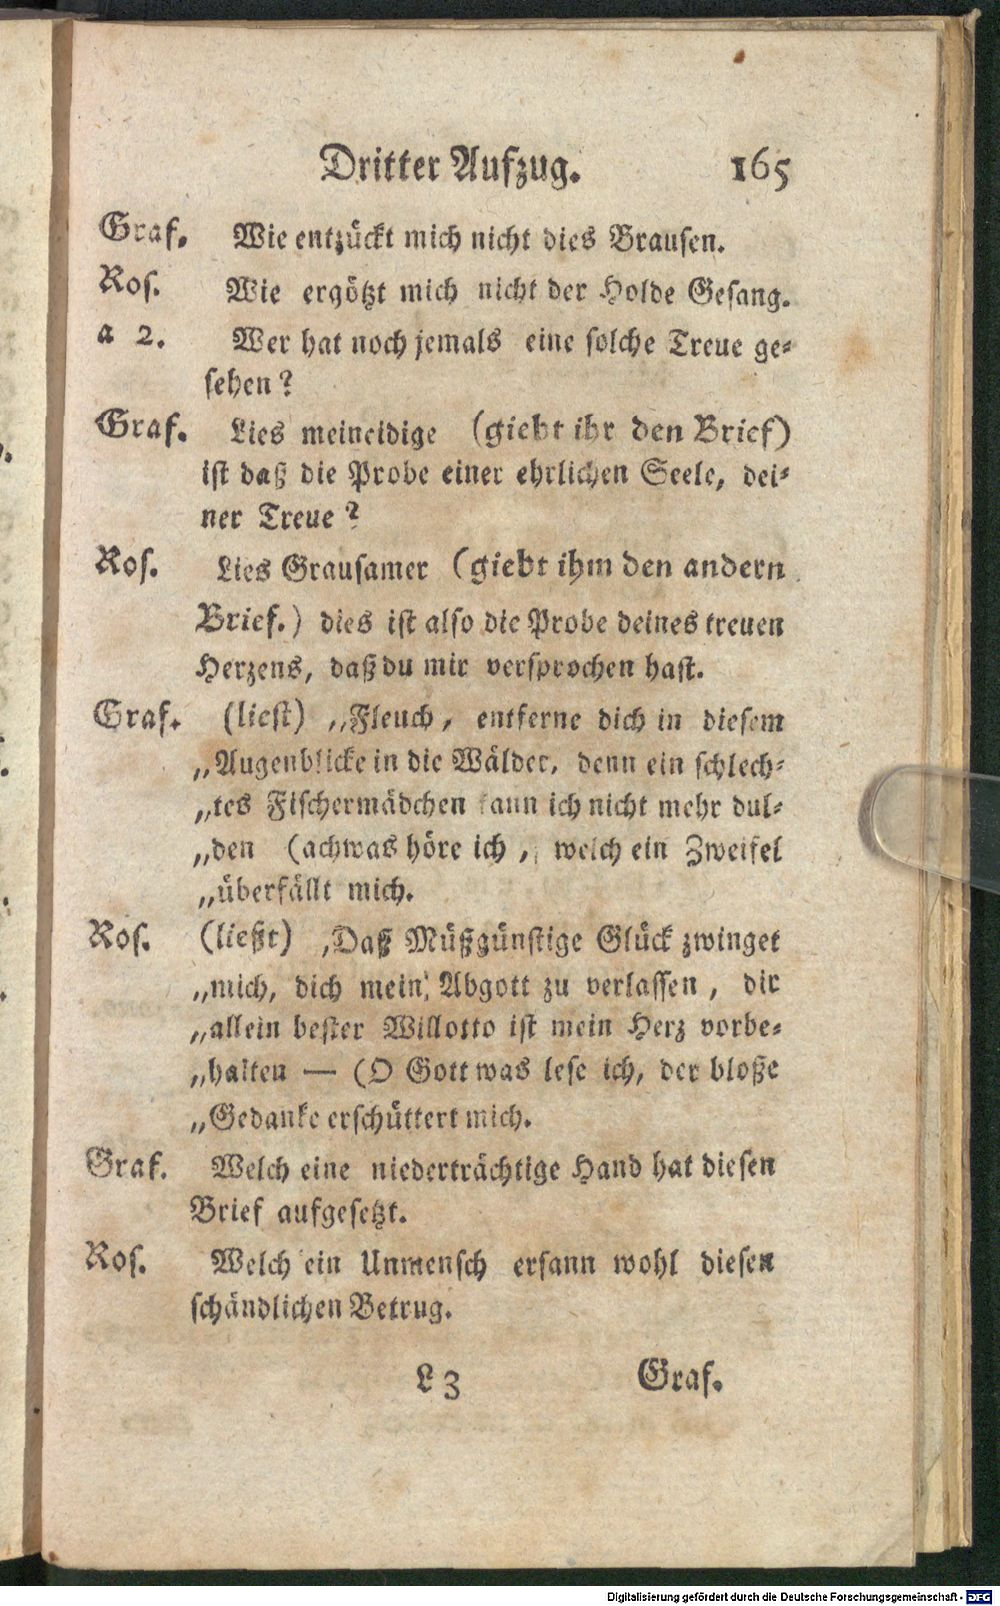 Dritter Aufzug. 165
Graf. Wie entzückt mich nicht dies Brausen.
Ros. Wie ergötzt mich nicht der Holde Gesang.
a 2. Wer hat noch jemals eine solche Treue ge-
sehen?
Graf. Lies meineidige (giebt ihr den Brief)
ist daß die Probe einer ehrlichen Seele, dei-
ner Treue?
Ros. Lies Grausamer (giebt ihm den andern
Brief.) dies ist also die Probe deines treuen
Herzens, daß du mir versprochen hast.
Graf. (liest) „Fleuch, entferne dich in diesem
„Augenblicke in die Wälder, denn ein schlech-
„tes Fischermädchen kann ich nicht mehr dul-
„den (achwas höre ich, welch ein Zweifel
„überfällt mich.
Ros. (ließt) ‚Daß Müßgünstige Glück zwinget
„mich, dich mein, Abgott zu verlassen, dir
„allein bester Willotto ist mein Herz vorbe-
„halten — (O Gott was lese ich, der bloße
„Gedanke erschüttert mich.
Graf. Welch eine niederträchtige Hand hat diesen
Brief aufgesetzt.
Ros. Welch ein Unmensch ersann wohl diesen
schändlichen Betrug.
L 3 Graf.
Digitalisierung gefördert durch die Deutsche Forschungsgemeinschaft - DFG